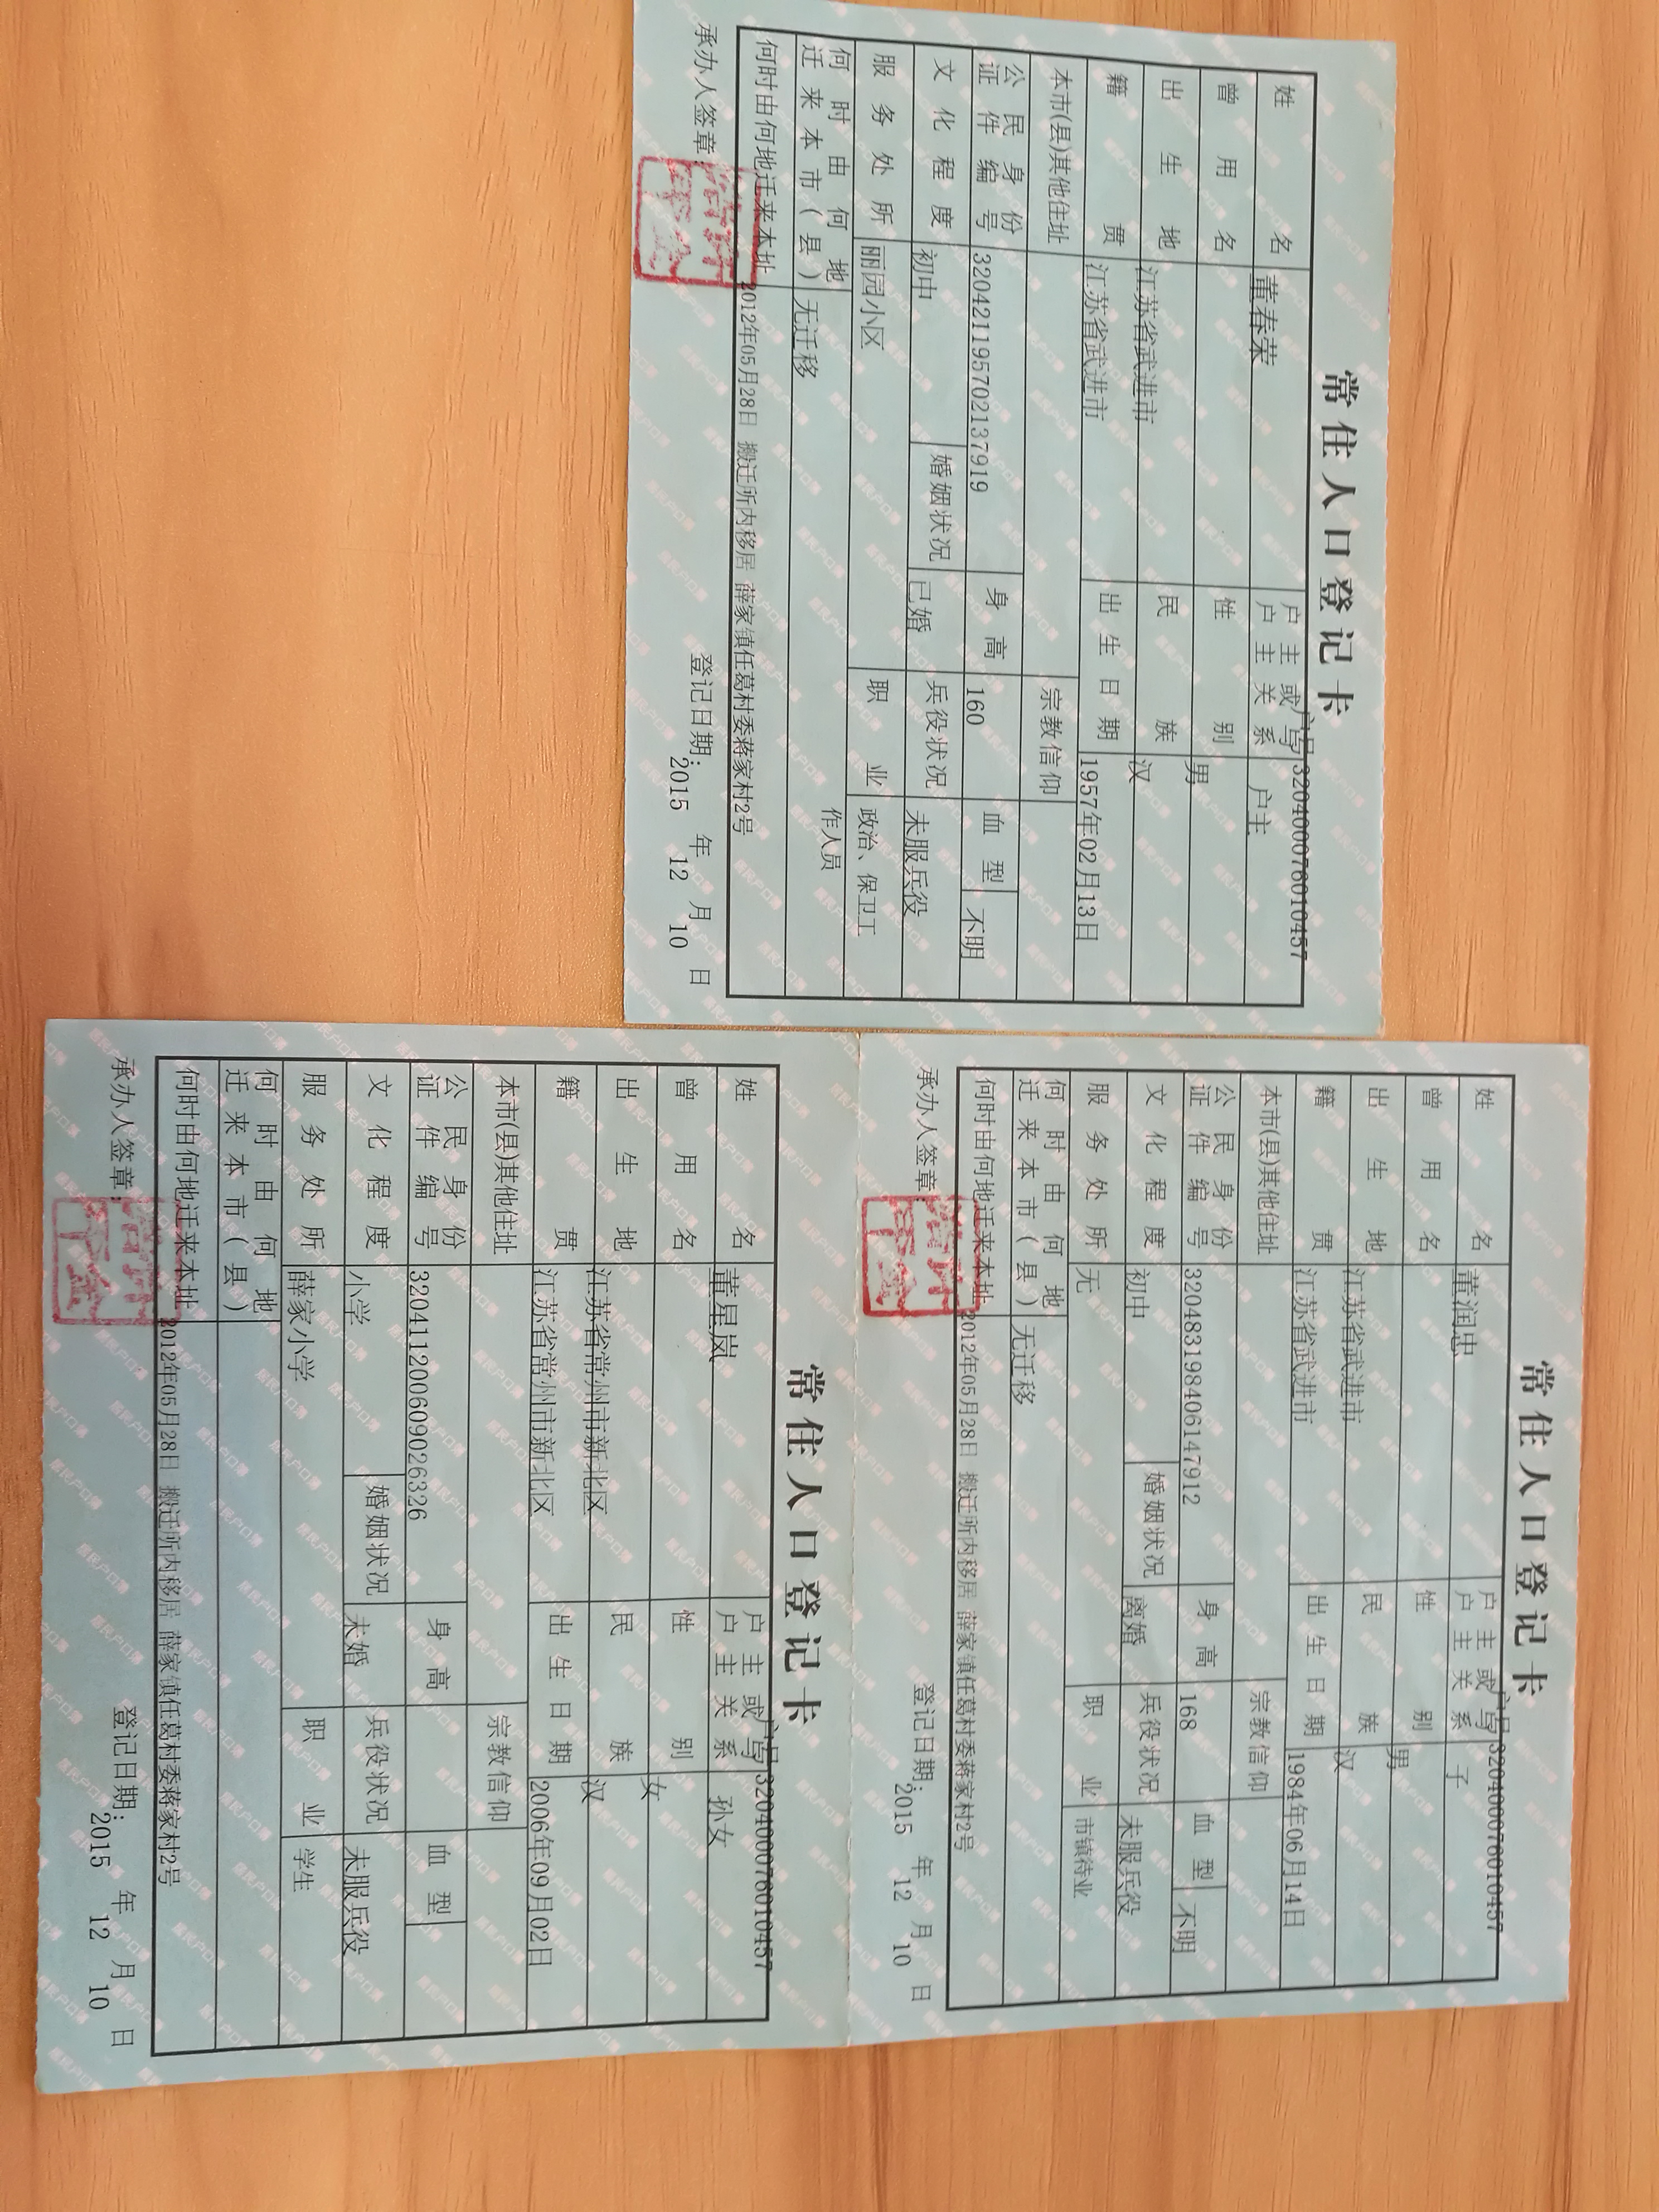 常住人口登记卡
户号 320400076010457
姓名 董春荣 户主或与户主关系 户主
曾用名 性别 男
出生地 江苏省武进市 民族 汉
籍贯 江苏省武进市 出生日期 1957年02月13日
本市(县)其他住址 宗教信仰
公民身份证件编号 320421195702137919 身高 160 血型 不明
文化程度 初中 婚姻状况 已婚 兵役状况 未服兵役
服务处所 丽园小区 职业 政治、保卫工作人员
何时由何地迁来本市(县) 无迁移
何时由何地迁来本址 2012年05月28日 搬迁所内移居 薛家镇任葛村委蒋家村2号
承办人签章: 登记日期: 2015 年 12 月 10 日
常住人口登记卡
户号 320400076010457
姓名 董润忠 户主或与户主关系 子
曾用名 性别 男
出生地 江苏省武进市 民族 汉
籍贯 江苏省武进市 出生日期 1984年06月14日
本市(县)其他住址 宗教信仰
公民身份证件编号 320483198406147912 身高 168 血型 不明
文化程度 初中 婚姻状况 离婚 兵役状况 未服兵役
服务处所 无 职业 市镇待业
何时由何地迁来本市(县) 无迁移
何时由何地迁来本址 2012年05月28日 搬迁所内移居 薛家镇任葛村委蒋家村2号
承办人签章: 登记日期: 2015 年 12 月 10 日
常住人口登记卡
户号 320400076010457
姓名 董星岚 户主或与户主关系 孙女
曾用名 性别 女
出生地 江苏省常州市新北区 民族 汉
籍贯 江苏省常州市新北区 出生日期 2006年09月02日
本市(县)其他住址 宗教信仰
公民身份证件编号 320411200609026326 身高 血型
文化程度 小学 婚姻状况 未婚 兵役状况 未服兵役
服务处所 薛家小学 职业 学生
何时由何地迁来本市(县)
何时由何地迁来本址 2012年05月28日 搬迁所内移居 薛家镇任葛村委蒋家村2号
承办人签章: 登记日期: 2015 年 12 月 10 日